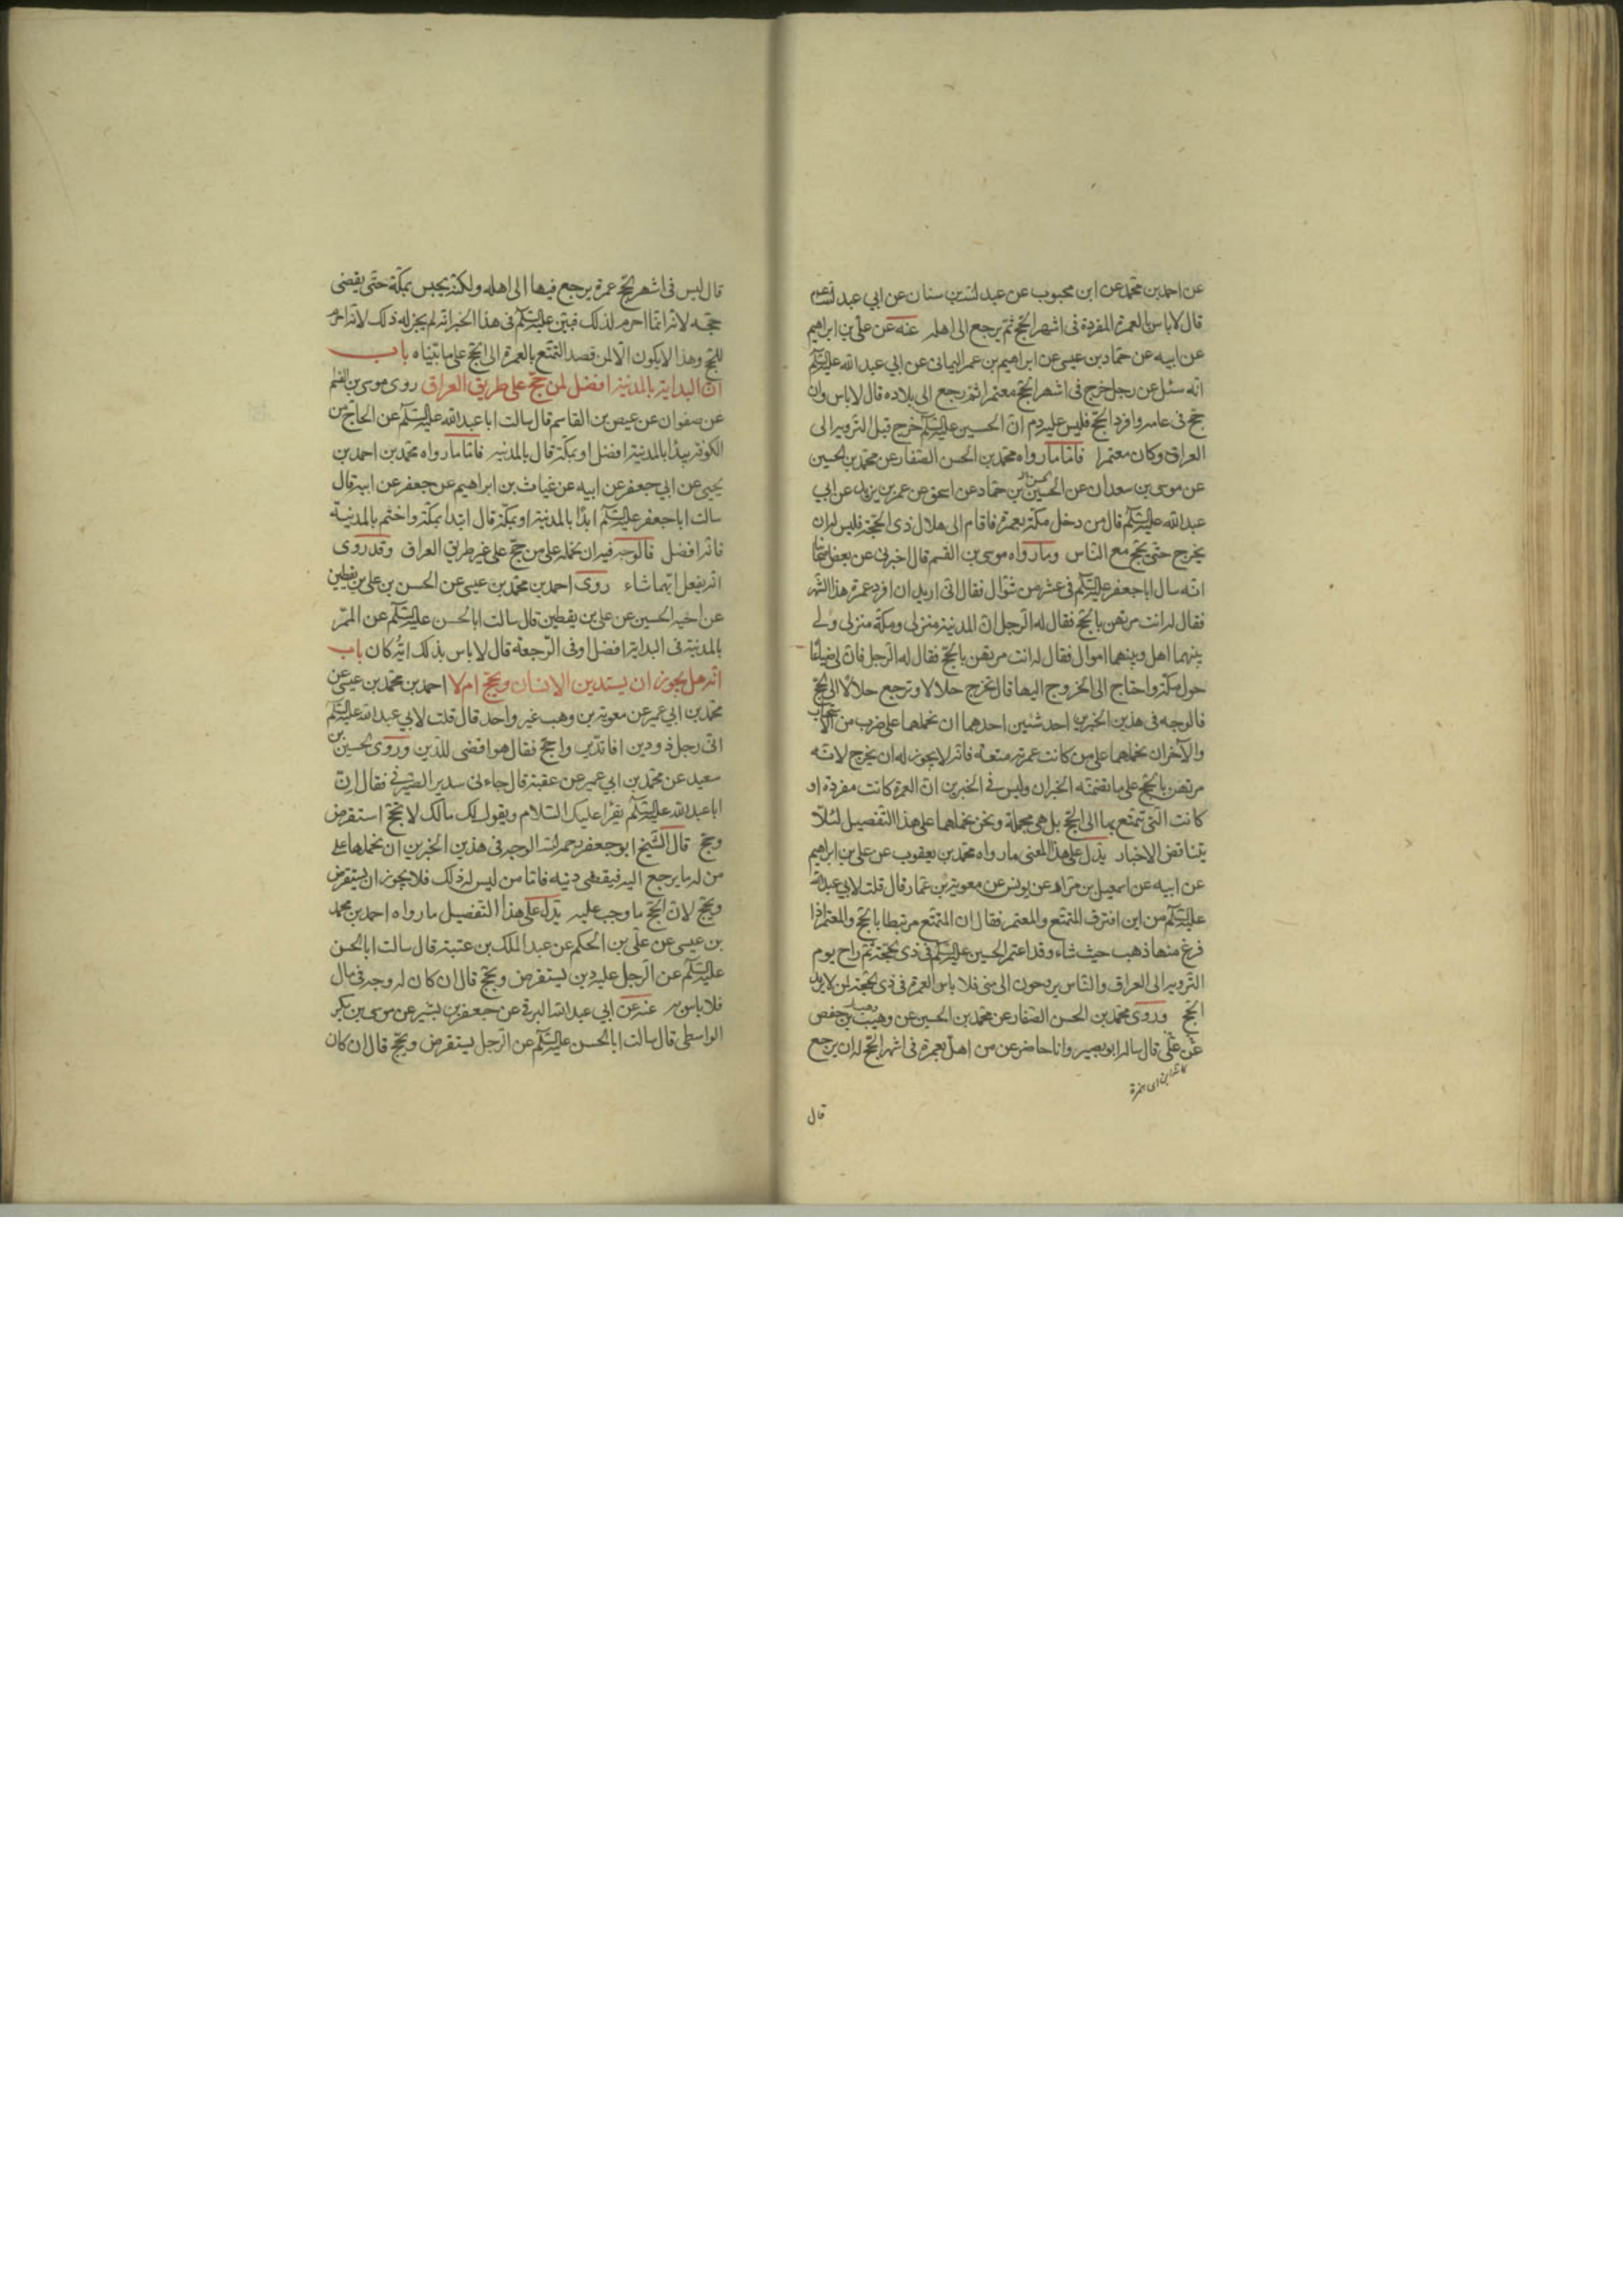 عن احمد بن محمد عن ابن محبوب عن عبد الله بن سنان عن ابي عبد الله ع
قال لا باس بالعمرة المفردة فى اشهر الحج ثم يرجع الى اهله عنه عن علي بن ابراهيم
عن ابيه عن حماد بن عيسى عن ابراهيم بن عمر اليمانى عن ابي عبد الله عليه السلم
انه سئل عن رجل خرج فى اشهر الحج معتمرا ثم رجع الى بلاده قال لا باس وان
حج فى عامه وافرد الحج فليس عليه دم ان الحسين عليه السلم خرج قبل التروية الى
العراق وكان معتمرا فاما ما رواه محمد بن الحسن الصفار عن محمد بن الحسين
عن موسى بن سعدان عن الحسين بن حماد عن اسحق عن عمر بن يزيد عن ابي
عبد الله عليه السلم قال من دخل مكة بعمرة فاقام الى هلال ذى الحجة فليس له ان
يخرج حتى يحج مع الناس وما رواه موسى بن القسم قال اخبرنى عن بعض اصحابنا
انه سال ابا جعفر عليه السلم فى عشر من شوال فقال انى اريد ان افرد عمرة هذا الشهر
فقال له انت مرتهن بالحج فقال له الرجل ان المدينة منزلى ومكة منزلى ولي
بينهما اهل وبينهما اموال فقال له انت مرتهن بالحج فقال له الرجل فان لى ضياعا
حول مكة واحتاج الى الخروج اليها قال تخرج حلالا وترجع حلالا الى الحج
فالوجه فى هذين الخبرين احد شئين احدهما ان نحملهما على ضرب من الاستحباب
والآخر ان نحملهما على من كانت عمرته متعة فانه لا يجوز له ان يخرج لانه
مرتهن بالحج على ما تضمنه الخبران وليس في الخبرين ان العمرة كانت مفردة او
كانت التى يتمتع بها الى الحج بل هى مجملة ونحن نحملهما على هذا التفصيل لئلا
يتناقض الاخبار يدل على هذا المعنى ما رواه محمد بن يعقوب عن علي بن ابراهيم
عن ابيه عن اسمعيل بن مرار عن يونس عن معوية بن عمار قال قلت لابي عبد الله
عليه السلم من اين افترق المتمتع والمعتمر فقال ان المتمتع مرتبط بالحج والمعتمر اذا
فرغ منها ذهب حيث شاء وقد اعتمر الحسين عليه السلم فى ذى الحجة ثم راح يوم
التروية الى العراق والناس يروحون الى منى فلا باس بالعمرة فى ذى الحجة لمن لا يريد
الحج وروى محمد بن الحسن الصفار عن محمد بن الحسين عن وهيب بن حفص
عن على قال ساله ابو بصير وانا حاضر عن من اهل بعمرة فى اشهر الحج له ان يرجع
قال
قال ليس فى اشهر الحج عمرة يرجع فيها الى اهله ولكنه يحبس بمكة حتى يقضى
حجه لانه انما احرم لذلك فبين عليه السلم فى هذا الخبر انه لم يجز له ذلك لانه احرم
للحج وهذا لا يكون الا لمن قصد التمتع بالعمرة الى الحج على ما بيناه باب
ان البداية بالمدينة افضل لمن حج على طريق العراق روى موسى بن القسم
عن صفوان عن عيص بن القاسم قال سالت ابا عبد الله عليه السلم عن الحاج من
الكوفة يبدا بالمدينة افضل او بمكة قال بالمدينة فاما ما رواه محمد بن احمد بن
يحيى عن ابي جعفر عن ابيه عن غياث بن ابراهيم عن جعفر عن ابيه قال
سالت ابا جعفر عليه السلم ابدا بالمدينة او بمكة قال ابدا بمكة واختم بالمدينة
فانه افضل فالوجه فيه ان نحمله على من حج على غير طريق العراق وقد روى
انه يفعل ايهما شاء روى احمد بن محمد بن عيسى عن الحسن بن علي بن يقطين
عن اخيه الحسين عن على بن يقطين قال سالت ابا الحسن عليه السلم عن الممر
بالمدينة فى البداية افضل او فى الرجعة قال لا باس بذلك اية كان باب
انه هل يجوز ان يستدين الانسان ويحج ام لا احمد بن محمد بن عيسى عن
محمد بن ابي عمير عن معوية بن وهب غير واحد قال قلت لابي عبد الله عليه السلم
انى رجل ذو دين افاتدين واحج فقال هو اقضى للدين وروى الحسين بن
سعيد عن محمد بن ابي عمير عن عقبة قال جاءنى سدير الصيرفي فقال ان
ابا عبد الله عليه السلم يقرا عليك السلام ويقول لك مالك لا تحج استقرض
وحج قال الشيخ ابو جعفر رحمه الله الوجه فى هذين الخبرين ان نحملهما على
من له ما يرجع اليه فيقضى دينه فاما من ليس له ذلك فلا يجوز ان يستقرض
ويحج لان الحج ما وجب عليه يدل على هذا التفصيل ما رواه احمد بن محمد
بن عيسى عن علي بن الحكم عن عبد الملك بن عتبة قال سالت ابا الحسن
عليه السلم عن الرجل عليه دين يستقرض ويحج قال ان كان له وجه فى مال
فلا باس به عنه عن ابي عبد الله البرقي عن جعفر بن بشير عن موسى بن بكر
الواسطى قال سالت ابا الحسن عليه السلم عن الرجل يستقرض ويحج قال ان كان